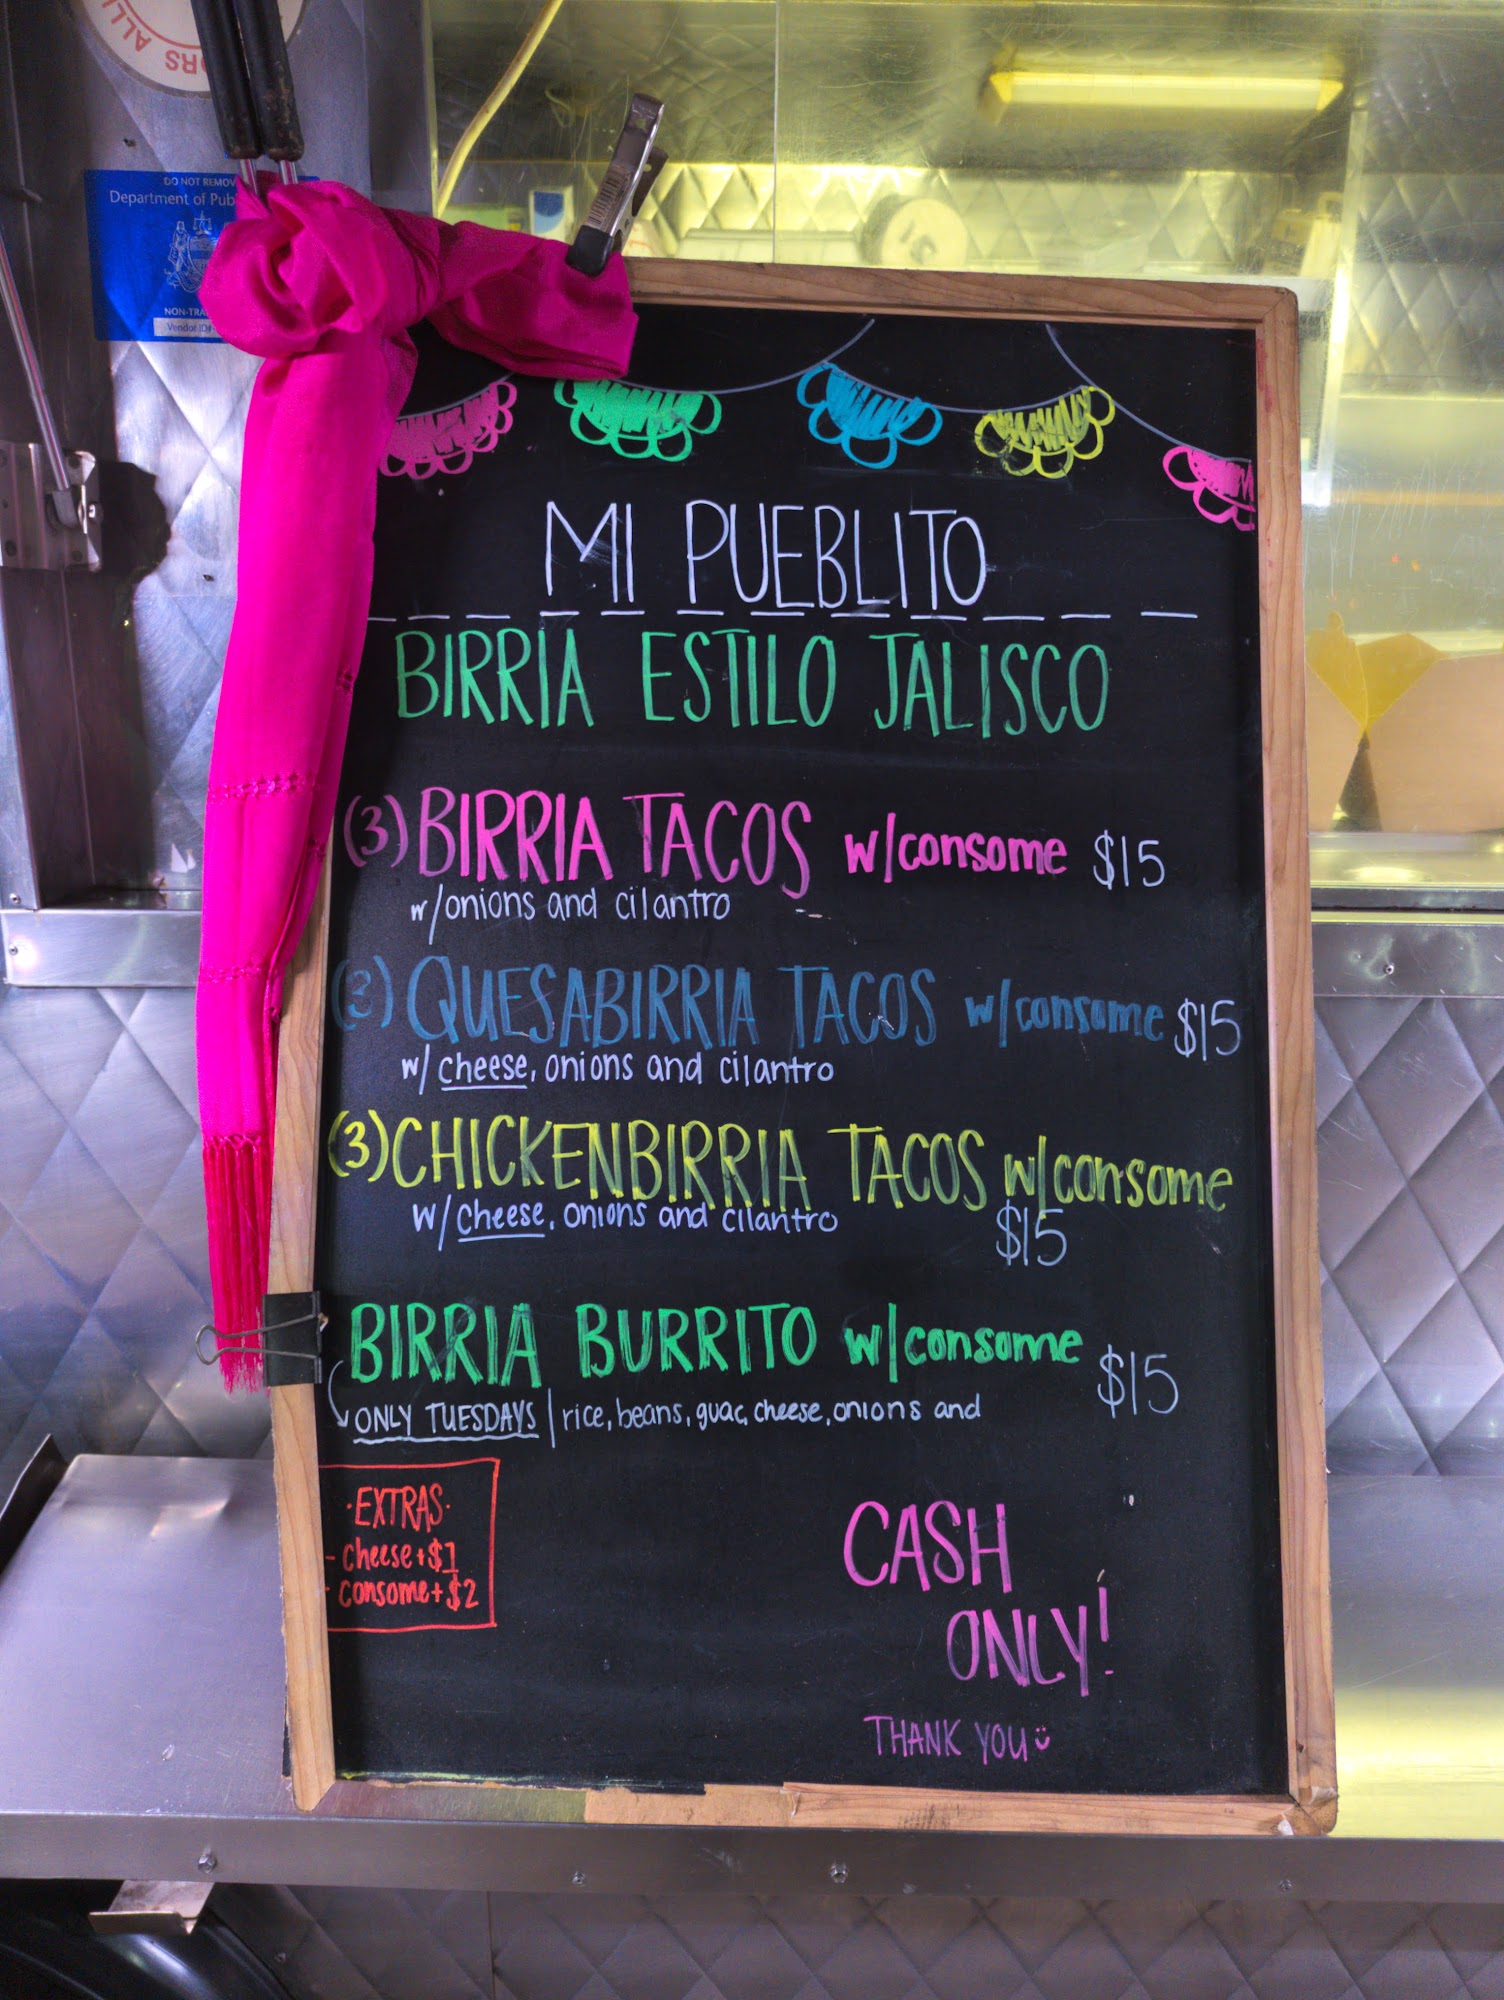 ORS ALL
DO NOT REMOV
Department of Pub
NON-TRA
Vendor ID#
MI PUEBLITO
BIRRIA ESTILO JALISCO
(3) BIRRIA TACOS w/consome $15
w/onions and cilantro
(3) QUESABIRRIA TACOS w/consome $15
w/ cheese, onions and cilantro
(3) CHICKENBIRRIA TACOS w/consome
w/ cheese, onions and cilantro $15
BIRRIA BURRITO w/consome $15
ONLY TUESDAYS | rice, beans, guac, cheese, onions and
·EXTRAS·
- cheese+$1
- consome+$2
CASH
ONLY!
THANK YOU